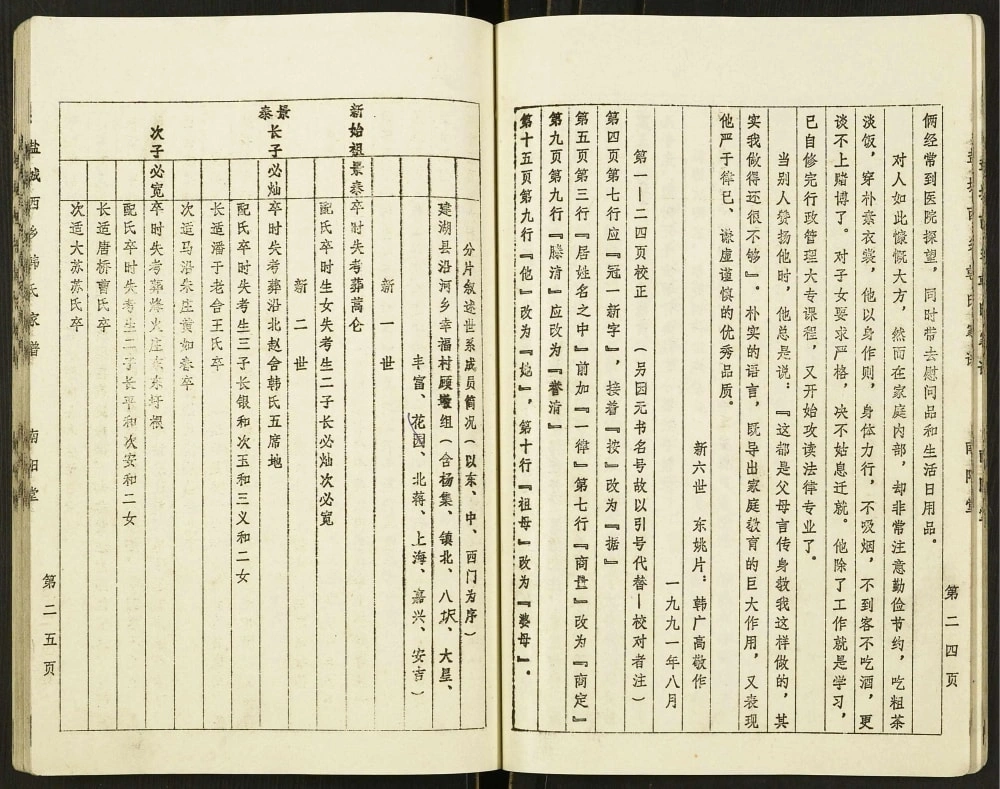 俩经常到医院探望，同时带去慰问品和生活日用品。
对人如此慷慨大方，然而在家庭内部，却非常注意勤俭节约，吃粗茶
淡饭，穿朴素衣裳，他以身作则，身体力行，不吸烟，不到客不吃酒，更
谈不上赌博了。对子女要求严格，决不姑息迁就。他除了工作就是学习，
已自修完行政管理大专课程，又开始攻读法律专业了。
当别人赞扬他时，他总是说：『这都是父母言传身教我这样做的，其
实我做得还很不够』。朴实的语言，既导出家庭教育的巨大作用，又表现
他严于律已、谦虚谨慎的优秀品质。
新六世 东姚片：韩广高敬作
一九九一年八月
第一—二四页校正 （另因无书名号故以引号代替—校对者注）
第四页第七行应『冠一新字』，接着『按』改为『据』
第五页第三行『居姓名之中』前加『一律』第七行『商量』改为『商定』
第九页第九行『滕清』应改为『誊清』
第十五页第九行『他』改为『她』，第十行『祖母』改为『婆母』。
第二四页
分片叙述世系成员简况（以东、中、西门为序）
建湖县沿河乡幸福村顾墩组（含杨集、镇北、八坝、大星、
丰富、花园、北蒋、上海、嘉兴、安吉）
新一世
新始祖景泰 卒时失考葬蒿仑
新二世
配氏卒时生女失考生二子长必灿次必宽
景泰长子必灿 卒时失考葬沿北赵舍韩氏五席地
配氏卒时失考生三子长银和次玉和三义和二女
长适潘于老舍王氏卒
次适马沿朱庄黄如春卒
次子必宽 卒时失考葬烽火庄东东圩根
配氏卒时失考生二子长平和次安和二女
长适唐桥曹氏卒
次适大苏苏氏卒
盐城西乡韩氏家谱 南阳堂
第二五页